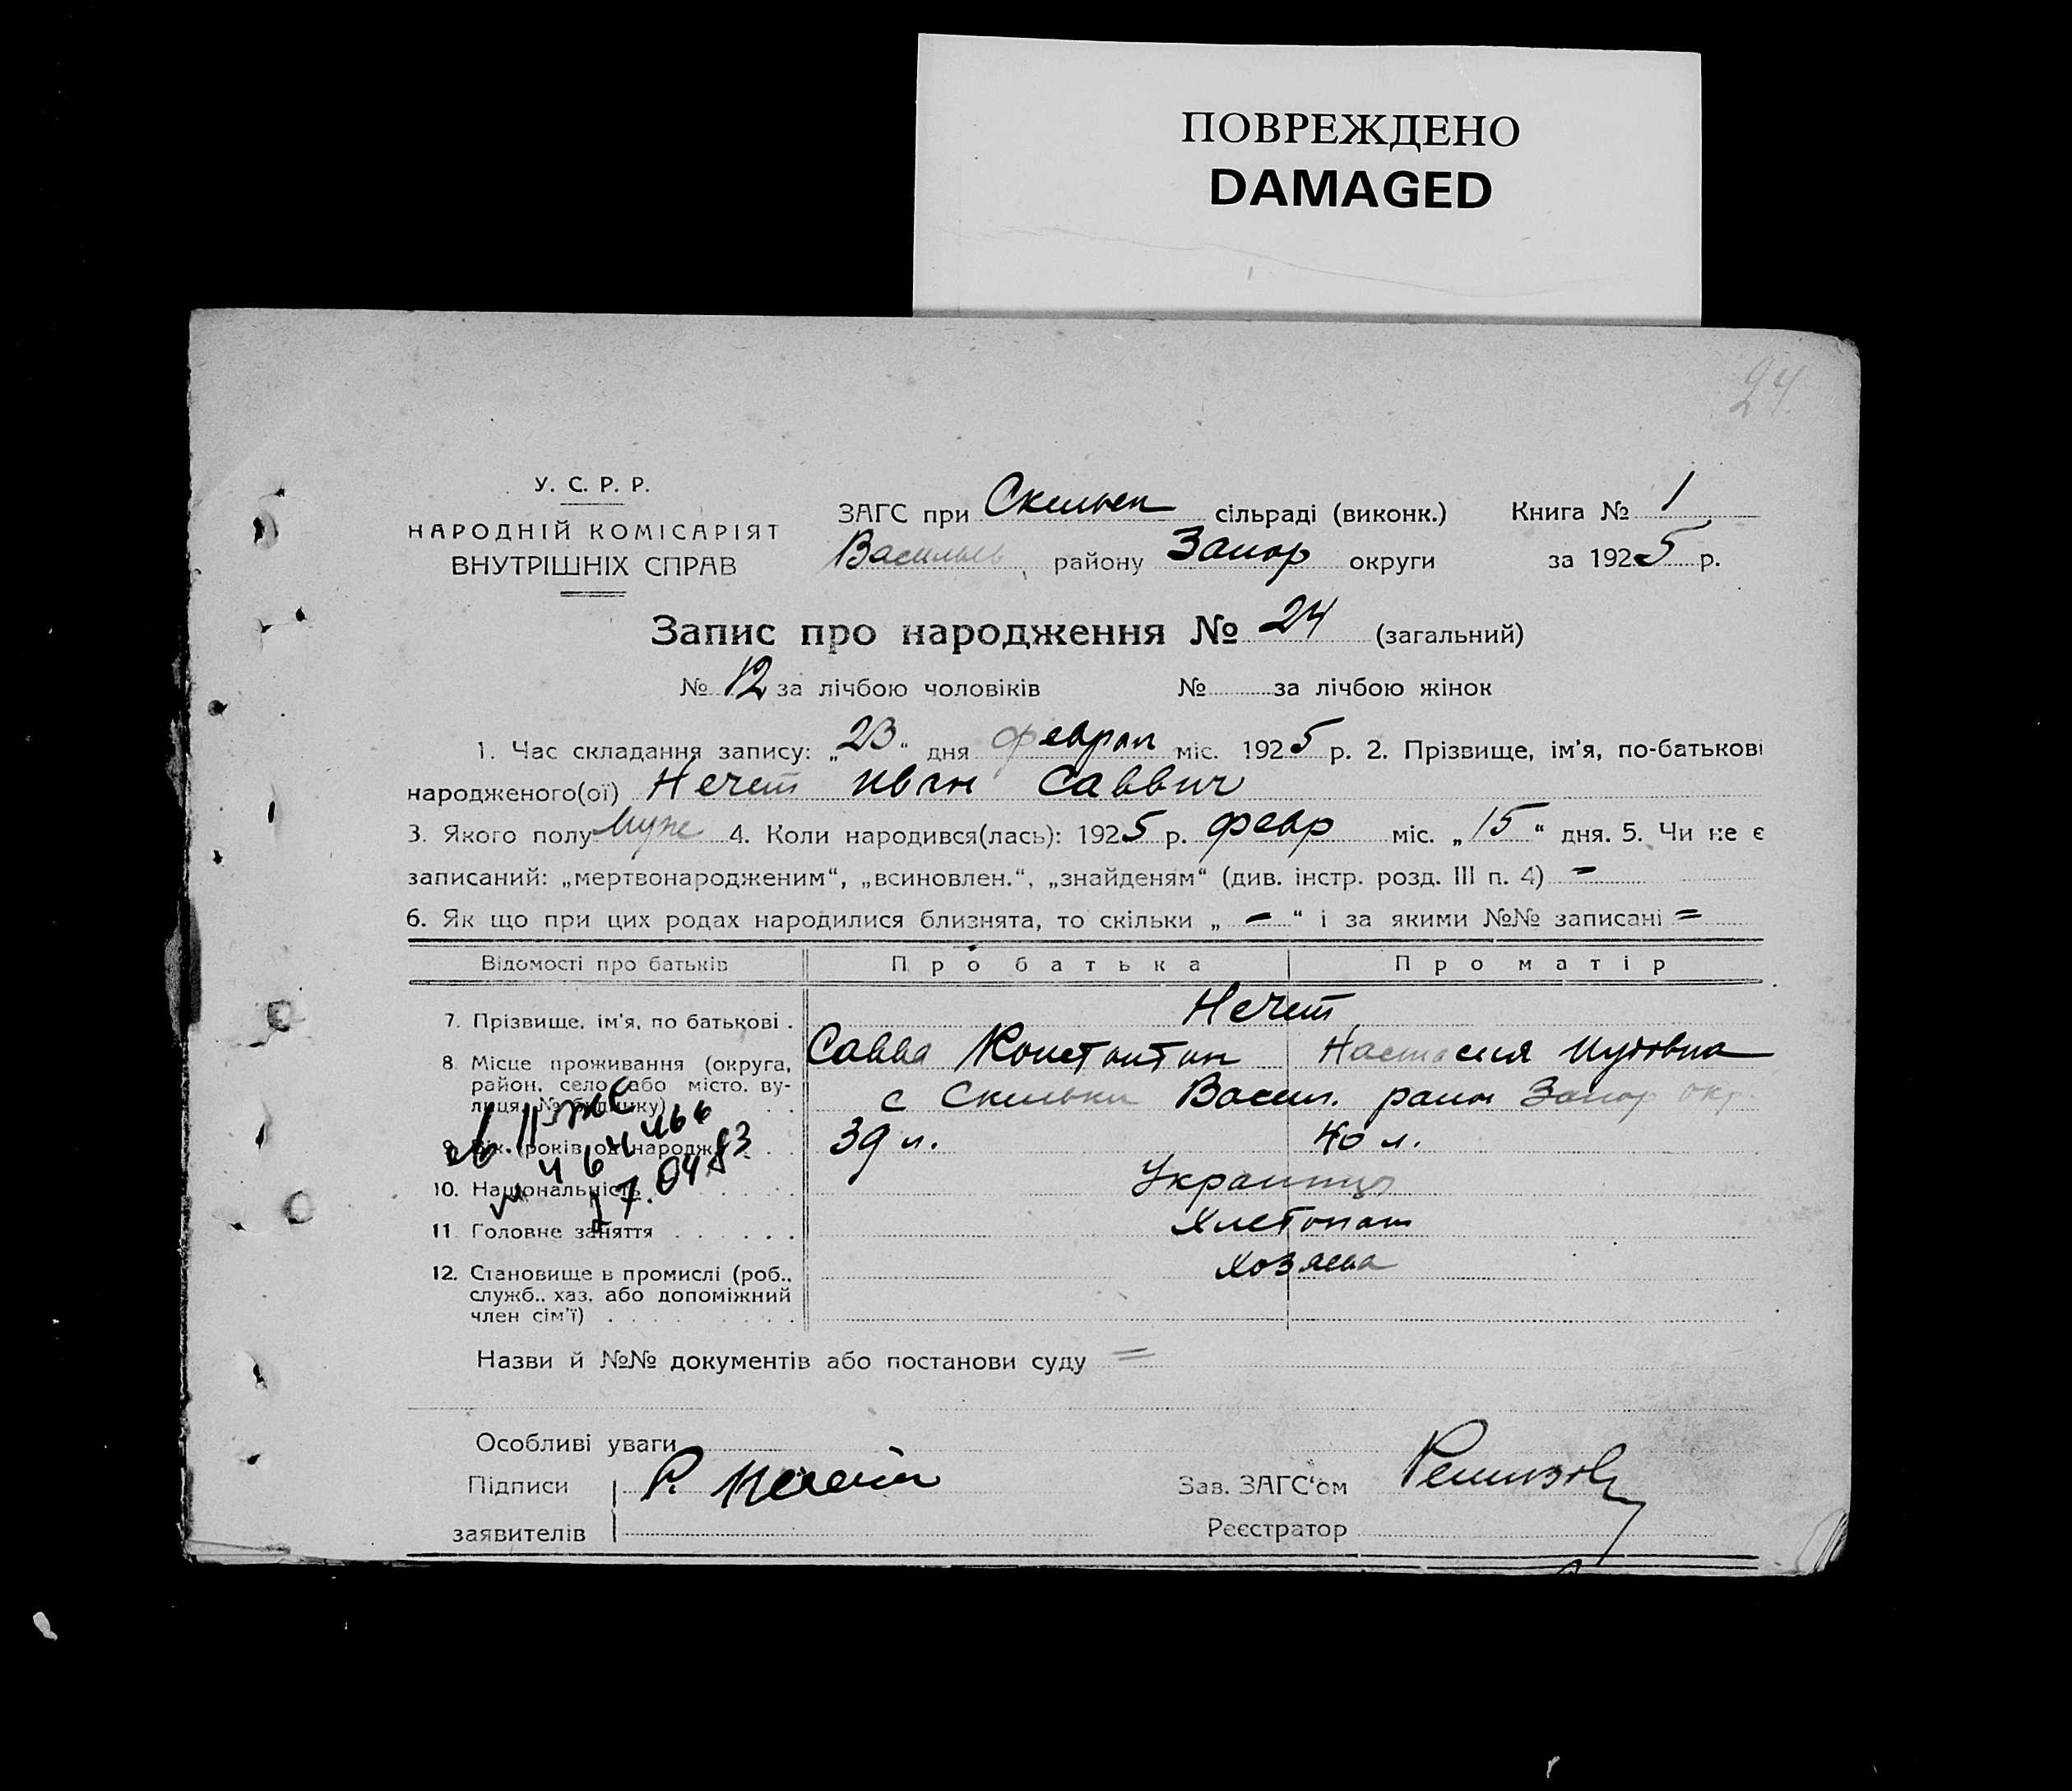 ПОВРЕЖДЕНО
DAMAGED
24
У. С. Р. Р.
НАРОДНІЙ КОМІСАРІЯТ
ВНУТРІШНІХ СПРАВ
ЗАГС при Скельск сільраді (виконк.) Книга № 1
Васильев району Запор округи за 1925 р.
Запис про народження № 24 (загальний)
№ 12 за лічбою чоловіків № за лічбою жінок
1. Час складання запису: „23“ дня феврал міс. 1925 р. 2. Прізвище, ім'я, по-батькові
народженого(ої) Нечет Иван Саввич
3. Якого полу Муж 4. Коли народився(лась): 1925 р. февр міс. „15“ дня. 5. Чи не є
записаний: „мертвонародженим“, „всиновлен.“, „знайденям“ (див. інстр. розд. III п. 4) =
6. Як що при цих родах народилися близнята, то скільки „ – “ і за якими №№ записані =
Відомості про батьків Про батька Про матір
7. Прізвище, ім'я, по батькові . Нечет
Савва Константин Настасия
8. Місце проживання (округа,
район, село або місто, ву-
лиця, № будинку) с Скельки Васил. район Запор окр.
9. Вік (років од народж.) 39 л. 40 л.
10. Національність Украинцы
11. Головне заняття Хлебопаш
12. Становище в промислі (роб.,
служб., хаз. або допоміжний
член сім'ї) Хозяева
Назви й №№ документів або постанови суду =
Особливі уваги
Підписи Нечет Зав. ЗАГС'ом
заявителів Реєстратор